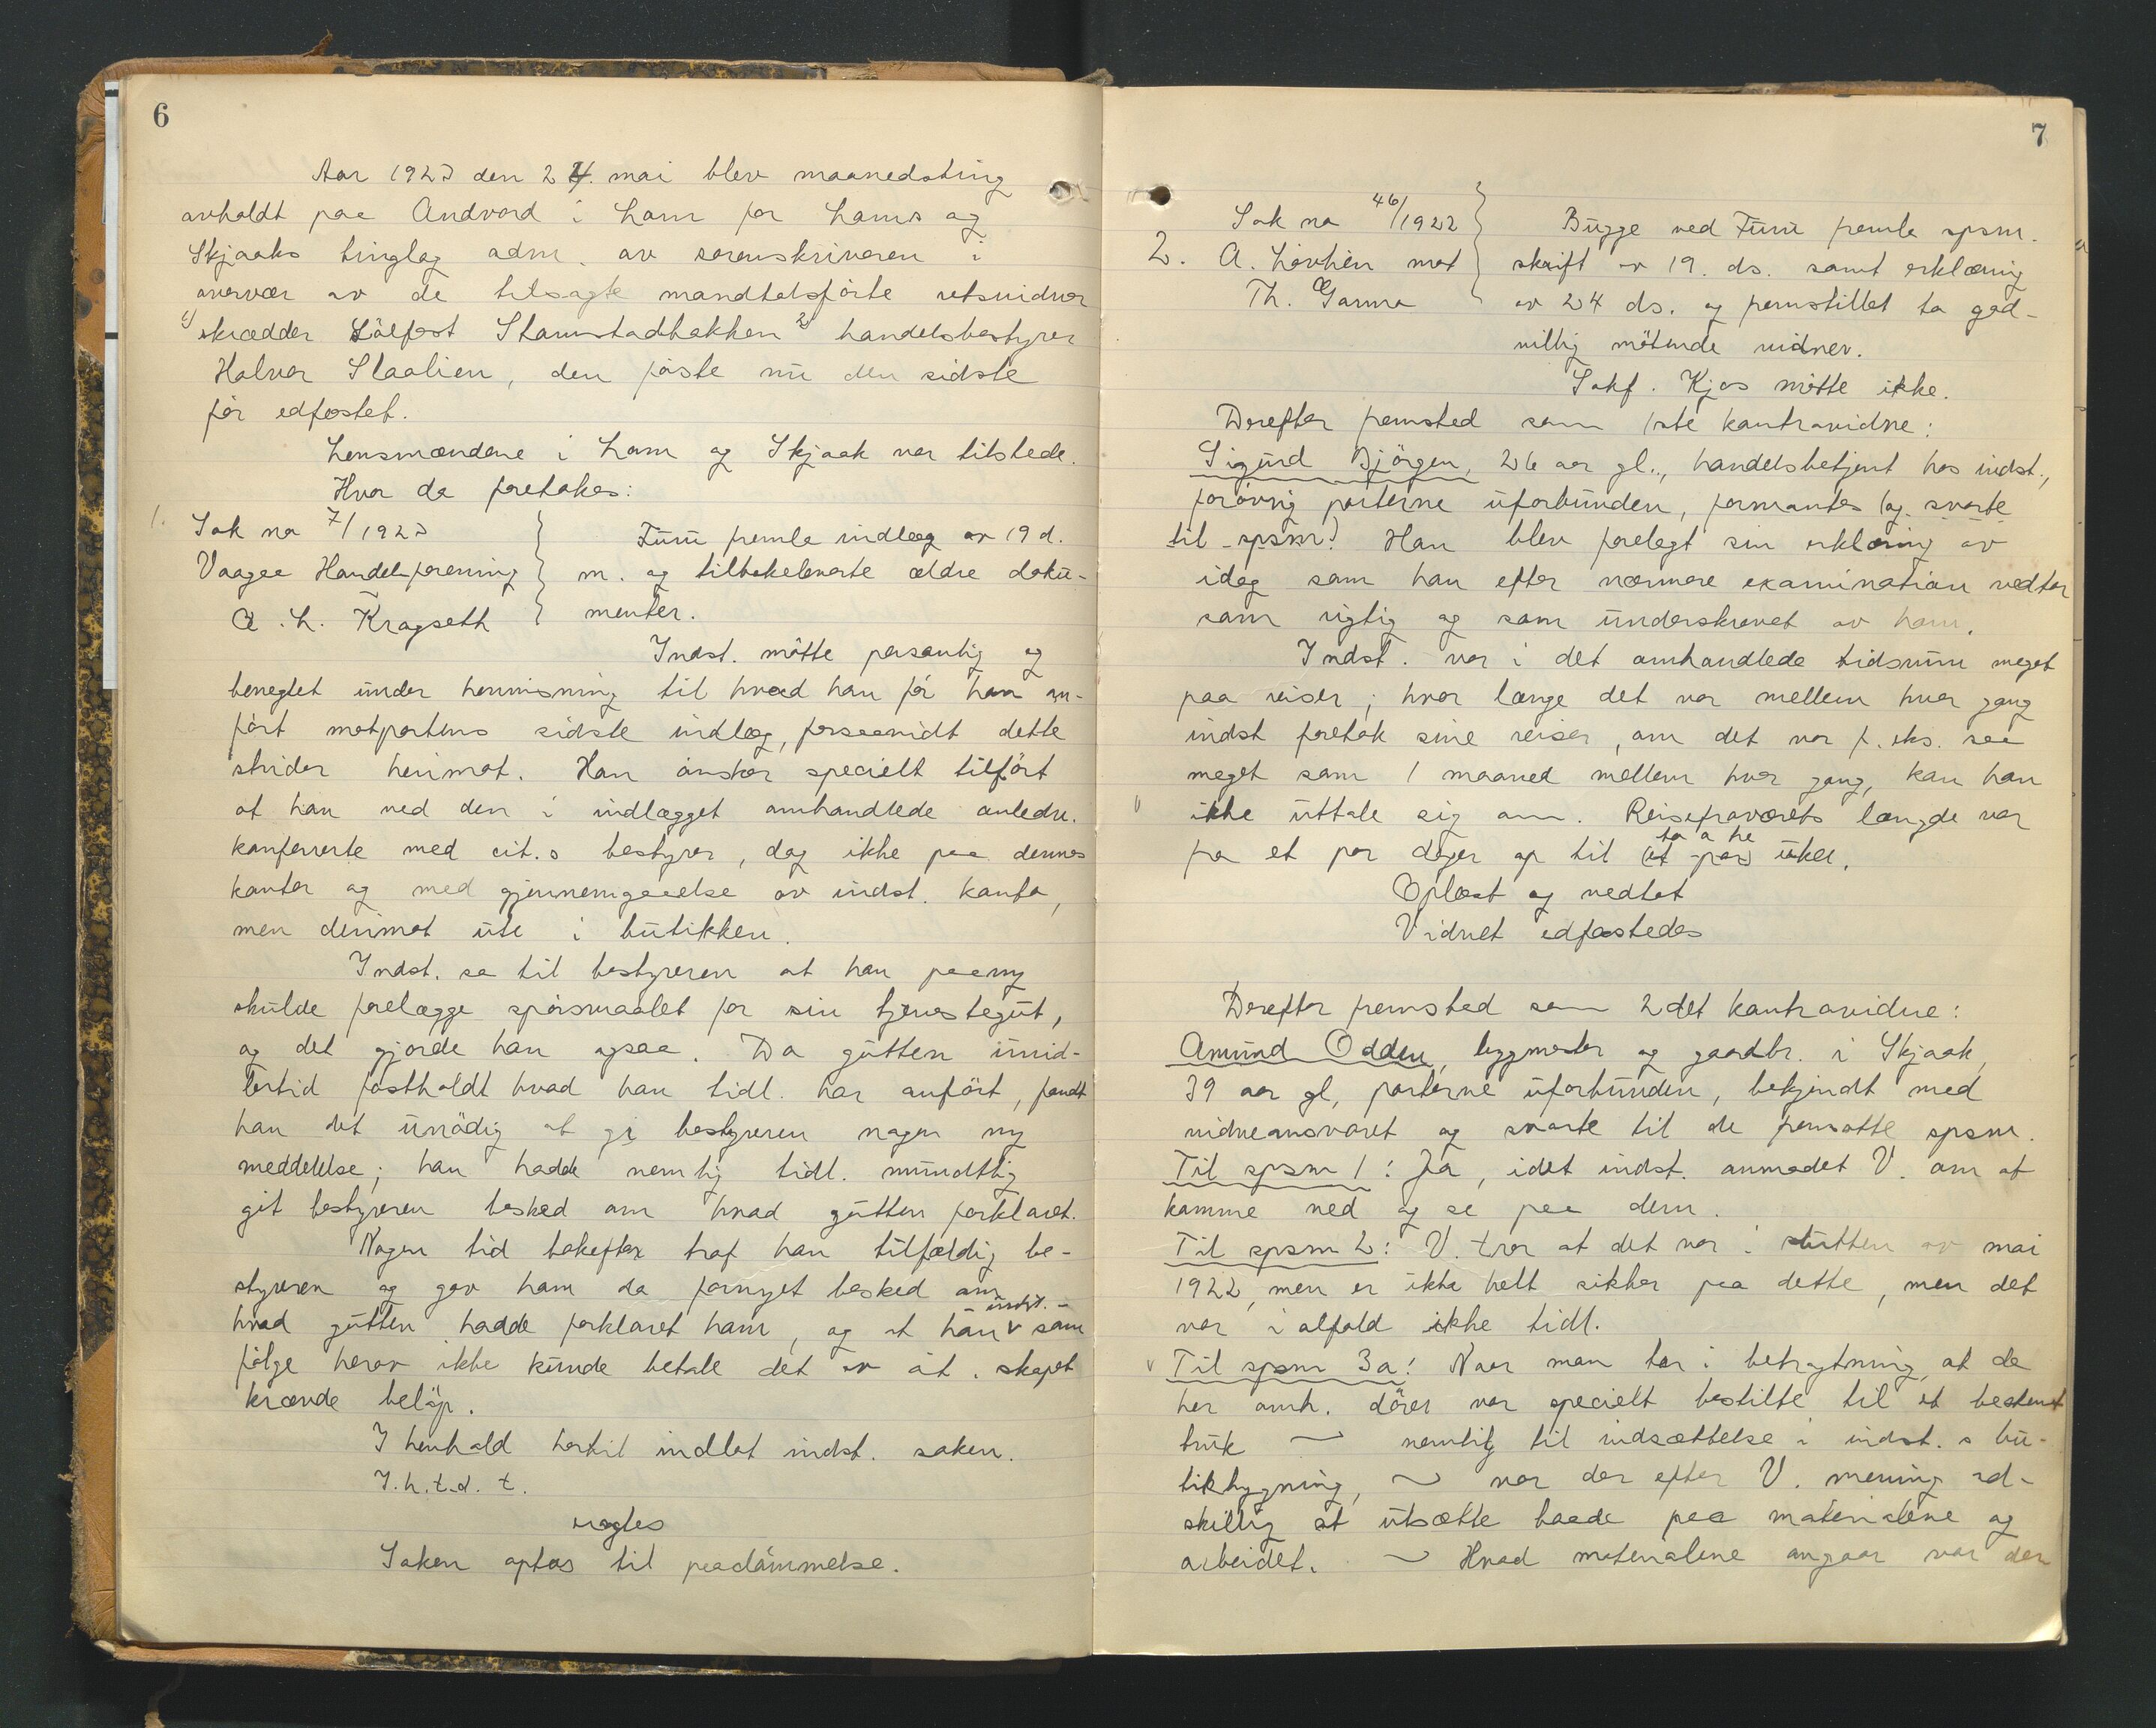 6
Aar 1923 den 24. mai blev maanedsting
avholdt paa Andvord i Lom for Loms og
Skjaaks tinglag adm. av sorenskriveren i
overvær av de tilsagte mandtalsförte retsvidner
1) skrædder Sölfest Stamstadbakken 2) handelsbestyrer
Halvor Slaalien, den förste nu den sidste
för edfæstet.
Lensmændene i Lom og Skjaak var tilstede.
Hvor da foretokes:
1. Sak no 7/1923
Vaagaa Handelsforening
L. Kragseth
Furu fremla indlæg av 19 d.
m. og tilbakeleverte ældre doku-
menter.
Indst. mötte personlig og
benegtet under henvisning til hvad han för har an-
fört motpartens sidste indlæg, forsaavidt dette
strider herimot. Han önsker specielt tilfört
at han ved den i indlægget omhandlede anledn.
konfererte med cit.s bestyrer, dog ikke paa dennes
kontor og med gjennemgaaelse av indst. konto,
men derimot ute i butikken.
Indst. sa til bestyreren at han paany
skulde forelægge spörsmaalet for sin tjenestegut,
og det gjorde han ogsaa. Da gutten imid-
lertid fastholdt hvad han tidl. har anfört, fandt
han det unödig at gi bestyreren nogen ny
meddelelse; han hadde nemlig tidl. mundtlig
git bestyreren besked om hvad gutten forklaret.
Nogen tid bakefter traf han tilfældig be-
styreren og gav ham da fornyet besked om
hvad gutten hadde forklaret ham, og at han - indst. - som
fölge herav ikke kunde betale det av cit. skapet
krævde belöp.
I henhold hertil indlot indst. saken.
I.h.t.d. t.
Saken optas til paadömmelse.
7
2. Sak no 46/1922
A. Lövhen mot
Th. Garmo
Bugge ved Furu fremla spsm.
skrift av 19. ds. samt erklæring
av 24 ds. og fremstillet to god-
villig mötende vidner.
Sakf. Kjos mötte ikke.
Derefter fremsted som 1ste kontravidne:
Sigurd Björgen, 26 aar gl., handelsbetjent hos indst.,
forövrig parterne uforbunden, formantes (og svarte
til spsm) Han blev forelagt sin erklæring av
idag som han efter nærmere examination vedtar
som rigtig og som underskrevet av ham.
Indst. var i det omhandlede tidsrum meget
paa reiser; hvor længe det var mellem hver gang
indst foretok sine reiser, om det var f. eks. saa
meget som 1 maaned mellem hver gang, kan han
ikke uttale sig om. Reisefraværets længde var
fra et par dager op til (et par) to a tre uker.
Oplæst og vedtat
Vidnet edfæstedes
Derefter fremsted som 2det kontravidne:
Amund Odden, byggmester og gaardbr. i Skjaak,
39 aar gl, parterne uforbunden, bekjendt med
vidneansvaret og svarte til de fremsatte spsm.
Til spsm 1: Ja, idet indst. anmodet V. om at
komme ned og se paa dem.
Til spsm 2: V. tror at det var i slutten av mai
1922, men er ikke helt sikker paa dette, men det
var ialfald ikke tidl.
Til spsm 3a: Naar man tar i betragtning at de
her omh. dörer var specielt bestilte til et bestemt
bruk ~ nemlig til indsættelse i indst.s bu-
tikbygning, ~ var der efter V. mening ad-
skillig at utsætte baade paa materialene og
arbeidet. ~ Hvad materialene angaar var der